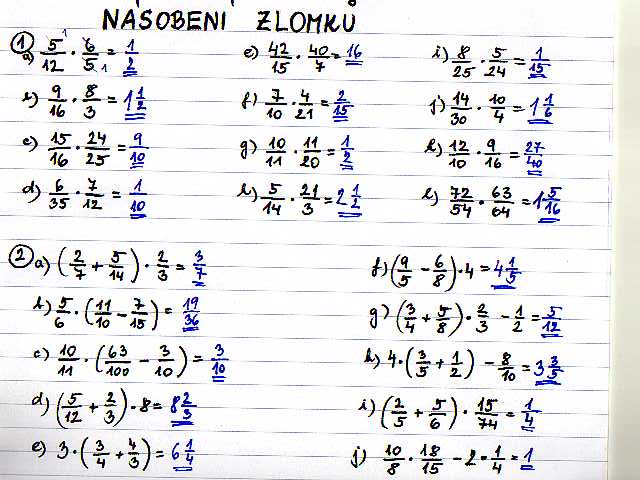 NÁSOBENÍ ZLOMKŮ
1 a) 5/12 · 6/5 = 1/2
b) 9/16 · 8/3 = 1 1/2
c) 15/16 · 24/25 = 9/10
d) 6/35 · 7/12 = 1/10
e) 42/15 · 40/7 = 16
f) 7/10 · 4/21 = 2/15
g) 10/11 · 11/20 = 1/2
h) 5/14 · 21/3 = 2 1/2
i) 8/25 · 5/24 = 1/15
j) 14/30 · 10/4 = 1 1/6
k) 12/10 · 9/16 = 27/40
l) 72/54 · 63/64 = 1 5/16
2 a) (2/7 + 5/14) · 2/3 = 3/7
b) 5/6 · (11/10 - 7/15) = 19/36
c) 10/11 · (63/100 - 3/10) = 3/10
d) (5/12 + 2/3) · 8 = 8 2/3
e) 3 · (3/4 + 4/3) = 6 1/4
f) (9/5 - 6/8) · 4 = 4 1/5
g) (3/4 + 5/8) · 2/3 - 1/2 = 5/12
h) 4 · (3/5 + 1/2) - 8/10 = 3 3/5
i) (2/5 + 5/6) · 15/74 = 1/4
j) 10/8 · 18/15 - 2 · 1/4 = 1